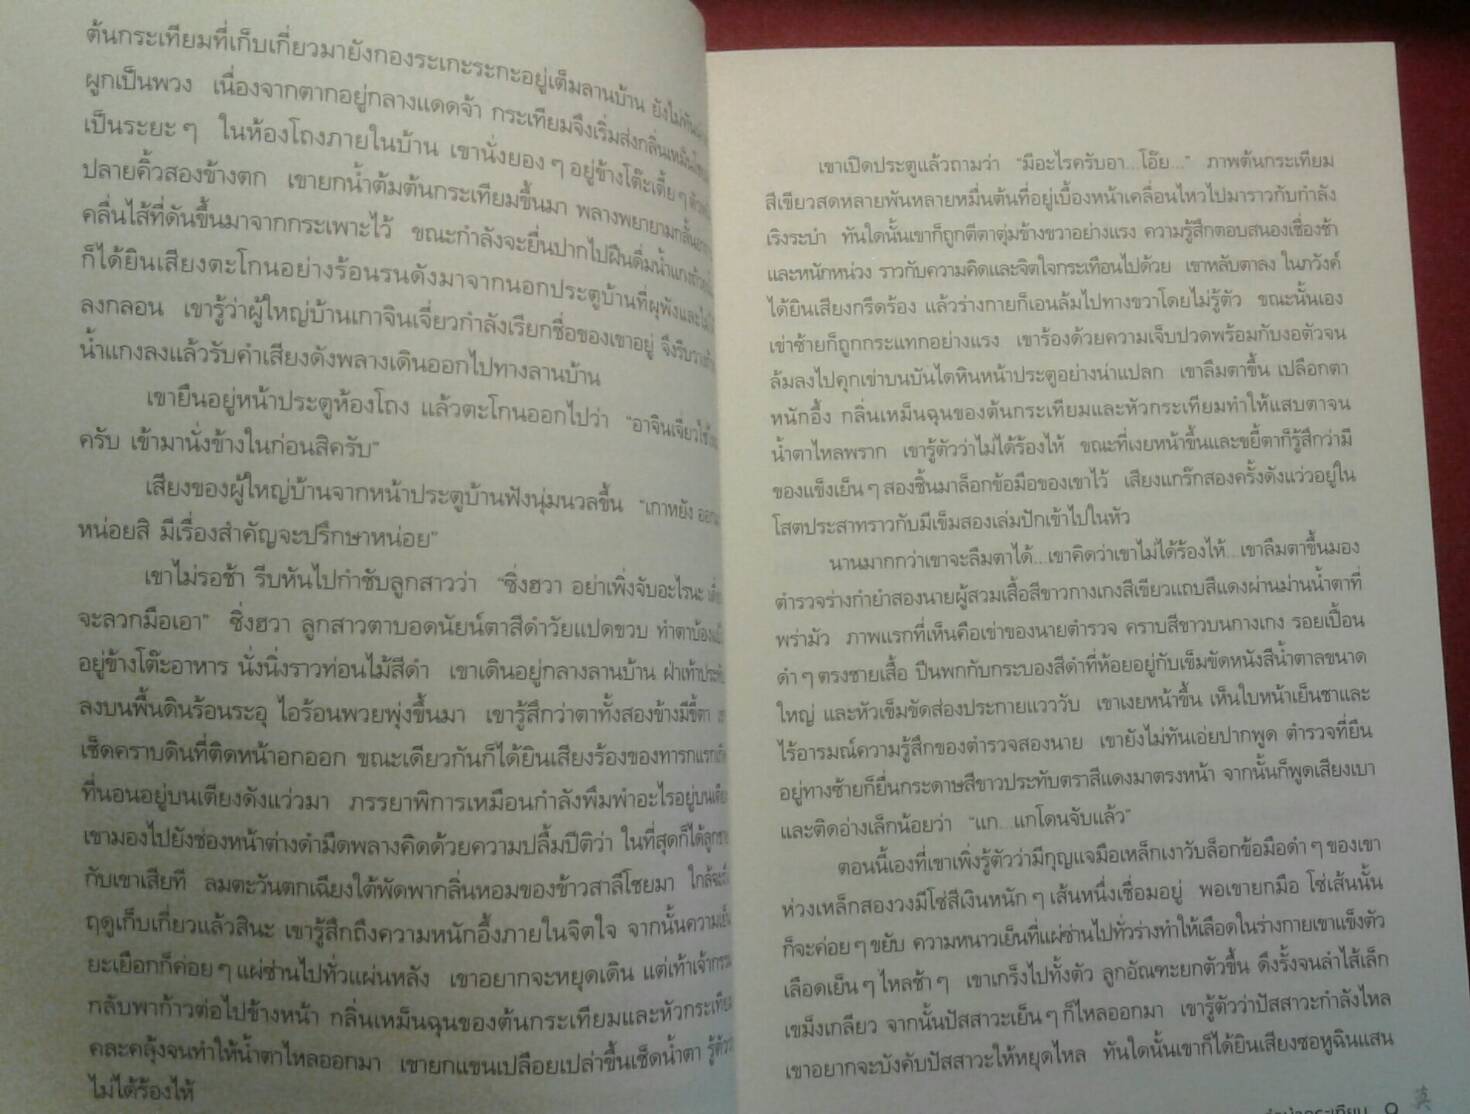 ต้นกระเทียมที่เก็บเกี่ยวมายังกองระเกะระกะอยู่เต็มลานบ้าน ยังไม่ทัน
ผูกเป็นพวง เนื่องจากตากอยู่กลางแดดจ้า กระเทียมจึงเริ่มส่งกลิ่นเหม็น
เป็นระยะๆ ในห้องโถงภายในบ้าน เขานั่งยองๆ อยู่ข้างโต๊ะเตี้ยๆ
ปลายคิ้วสองข้างตก เขายกน้ำต้มต้นกระเทียมขึ้นมา พลางพยายามกลั้น
คลื่นไส้ที่ดันขึ้นมาจากกระเพาะไว้ ขณะกำลังจะยื่นปากไปฝืนดื่มน้ำแกง
ก็ได้ยินเสียงตะโกนอย่างร้อนรนดังมาจากนอกประตูบ้านที่ผุพังและ
ลงกลอน เขารู้ว่าผู้ใหญ่บ้านเกาจินเจี่ยวกำลังเรียกชื่อของเขาอยู่ จึงรีบ
น้ำแกงลงแล้วรับคำเสียงดังพลางเดินออกไปทางลานบ้าน
เขายืนอยู่หน้าประตูห้องโถง แล้วตะโกนออกไปว่า “อาจินเจี่ยว
ครับ เข้ามานั่งข้างในก่อนสิครับ”
เสียงของผู้ใหญ่บ้านจากหน้าประตูบ้านฟังนุ่มนวลขึ้น “เกาหยัง
หน่อยสิ มีเรื่องสำคัญจะปรึกษาหน่อย”
เขาไม่รอช้า รีบหันไปกำชับลูกสาวว่า “ซิ่งฮวา อย่าเพิ่งจับอะไรนะ
จะลวกมือเอา” ซิ่งฮวา ลูกสาวตาบอดนัยน์ตาสีดำวัยแปดขวบ ทำตา
อยู่ข้างโต๊ะอาหาร นั่งนิ่งราวท่อนไม้สีดำ เขาเดินอยู่กลางลานบ้าน ฝ่าเท้า
ลงบนพื้นดินร้อนระอุ ไอร้อนพวยพุ่งขึ้นมา เขารู้สึกว่าตาทั้งสองข้างมีขี้ตา
เช็ดคราบดินที่ติดหน้าอกออก ขณะเดียวกันก็ได้ยินเสียงร้องของทารก
ที่นอนอยู่บนเตียงดังแว่วมา ภรรยาพิการเหมือนกำลังพึมพำอะไรอยู่บน
เขามองไปยังช่องหน้าต่างดำมืดพลางคิดด้วยความปลื้มปีติว่า ในที่สุดก็ได้
กับเขาเสียที ลมตะวันตกเฉียงใต้พัดพากลิ่นหอมของข้าวสาลีโชยมา
ฤดูเก็บเกี่ยวแล้วสินะ เขารู้สึกถึงความหนักอึ้งภายในจิตใจ จากนั้น
ยะเยือกก็ค่อยๆ แผ่ซ่านไปทั่วแผ่นหลัง เขาอยากจะหยุดเดิน แต่เท้า
กลับพาก้าวต่อไปข้างหน้า กลิ่นเหม็นฉุนของต้นกระเทียมและหัวกระเทียม
คละคลุ้งจนทำให้น้ำตาไหลออกมา เขายกแขนเปลือยเปล่าขึ้นเช็ดน้ำตา
ไม่ได้ร้องไห้
เขาเปิดประตูแล้วถามว่า “มีอะไรครับอา...โอ๊ย...” ภาพต้นกระเทียม
สีเขียวสดหลายพันหลายหมื่นต้นที่อยู่เบื้องหน้าเคลื่อนไหวไปมาราวกับกำลัง
เริงระบำ ทันใดนั้นเขาก็ถูกตีตาตุ่มข้างขวาอย่างแรง ความรู้สึกตอบสนองเชื่องช้า
และหนักหน่วง ราวกับความคิดและจิตใจกระเทือนไปด้วย เขาหลับตาลง ในภวังค์
ได้ยินเสียงกรีดร้อง แล้วร่างกายก็เอนล้มไปทางขวาโดยไม่รู้ตัว ขณะนั้นเอง
เข่าซ้ายก็ถูกกระแทกอย่างแรง เขาร้องด้วยความเจ็บปวดพร้อมกับงอตัวจน
ล้มลงไปคุกเข่าบนบันไดหินหน้าประตูอย่างน่าแปลก เขาลืมตาขึ้น เปลือกตา
หนักอึ้ง กลิ่นเหม็นฉุนของต้นกระเทียมและหัวกระเทียมทำให้แสบตาจน
น้ำตาไหลพราก เขารู้ตัวว่าไม่ได้ร้องไห้ ขณะที่เงยหน้าขึ้นและขยี้ตาก็รู้สึกว่ามี
ของแข็งเย็นๆ สองชิ้นมาล็อกข้อมือของเขาไว้ เสียงแกร๊กสองครั้งดังแว่วอยู่ใน
โสตประสาทราวกับมีเข็มสองเล่มปักเข้าไปในหัว
นานมากกว่าเขาจะลืมตาได้...เขาคิดว่าเขาไม่ได้ร้องไห้...เขาลืมตาขึ้นมอง
ตำรวจร่างกำยำสองนายผู้สวมเสื้อสีขาวกางเกงสีเขียวแถบสีแดงผ่านม่านน้ำตาที่
พร่ามัว ภาพแรกที่เห็นคือเข่าของนายตำรวจ คราบสีขาวบนกางเกง รอยเปื้อน
ดำๆ ตรงชายเสื้อ ปืนพกกับกระบองสีดำที่ห้อยอยู่กับเข็มขัดหนังสีน้ำตาลขนาด
ใหญ่ และหัวเข็มขัดส่องประกายแวววับ เขาเงยหน้าขึ้น เห็นใบหน้าเย็นชาและ
ไร้อารมณ์ความรู้สึกของตำรวจสองนาย เขายังไม่ทันเอ่ยปากพูด ตำรวจที่ยืน
อยู่ทางซ้ายก็ยื่นกระดาษสีขาวประทับตราสีแดงมาตรงหน้า จากนั้นก็พูดเสียงเบา
และติดอ่างเล็กน้อยว่า “แก...แกโดนจับแล้ว”
ตอนนี้เองที่เขาเพิ่งรู้ตัวว่ามีกุญแจมือเหล็กเงาวับล็อกข้อมือดำๆ ของเขา
ห่วงเหล็กสองวงมีโซ่สีเงินหนักๆ เส้นหนึ่งเชื่อมอยู่ พอเขายกมือ โซ่เส้นนั้น
ก็จะค่อยๆ ขยับ ความหนาวเย็นที่แผ่ซ่านไปทั่วร่างทำให้เลือดในร่างกายเขาแข็งตัว
เลือดเย็นๆ ไหลช้าๆ เขาเกร็งไปทั้งตัว ลูกอัณฑะยกตัวขึ้น ดึงรั้งจนลำไส้เล็ก
เขม็งเกลียว จากนั้นปัสสาวะเย็นๆ ก็ไหลออกมา เขารู้ตัวว่าปัสสาวะกำลังไหล
เขาอยากจะบังคับปัสสาวะให้หยุดไหล ทันใดนั้นเขาก็ได้ยินเสียงซอหูฉินแสน